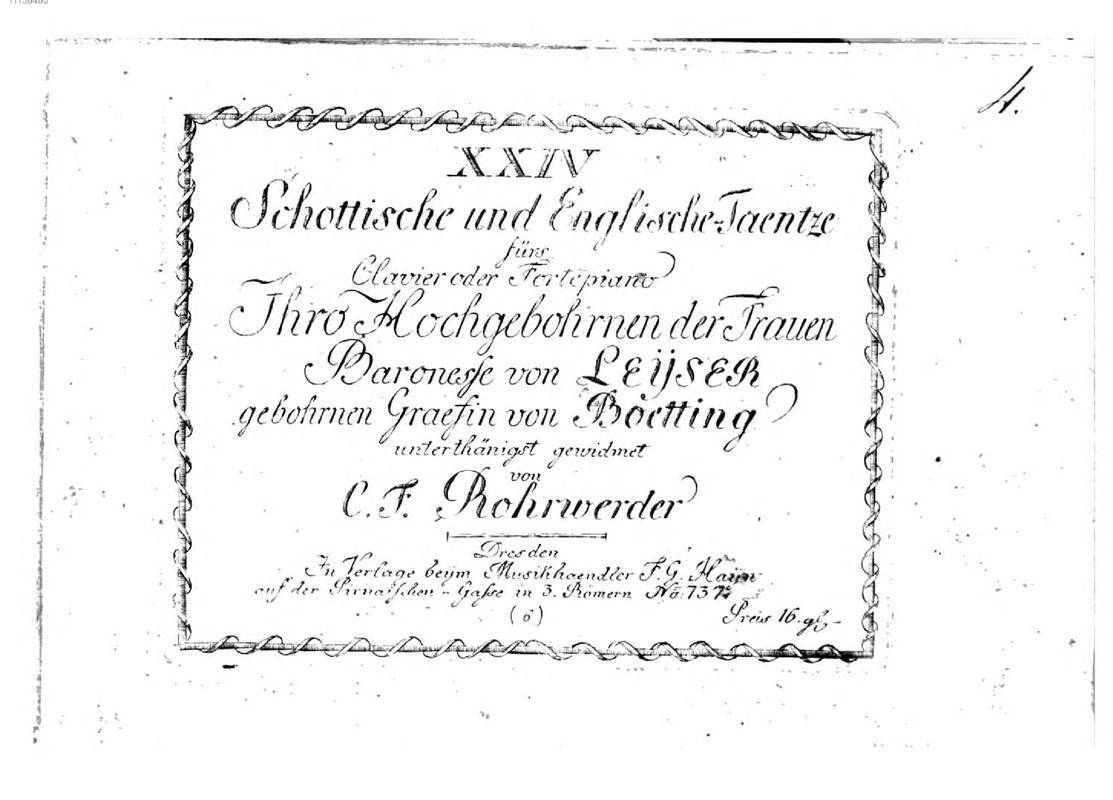 4.
XXIV
Schottische und Englische-Taentze
fürs
Clavier oder Fortepiano
Ihro Hochgebohrnen der Frauen
Baronesse von LEIJSER
gebohrnen Graefin von Boetting
unterthänigst gewidmet
von
C. F. Rohrwerder
Dresden
In Verlage beijm Musikhaendler F. G. Haijn
auf der Pirnaischen-Gasse in 3. Römern No. 737
(6)
Preis 16. gl.